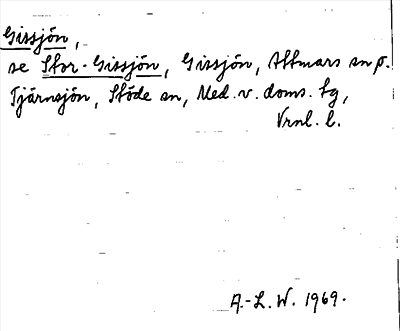 Gissjön,
se Stor-Gissjön, Gissjön, Attmars sn o.
Tjärnsjön, Stöde sn, Med. v. doms. tg,
Vrnl. l.
A.-L. W. 1969.